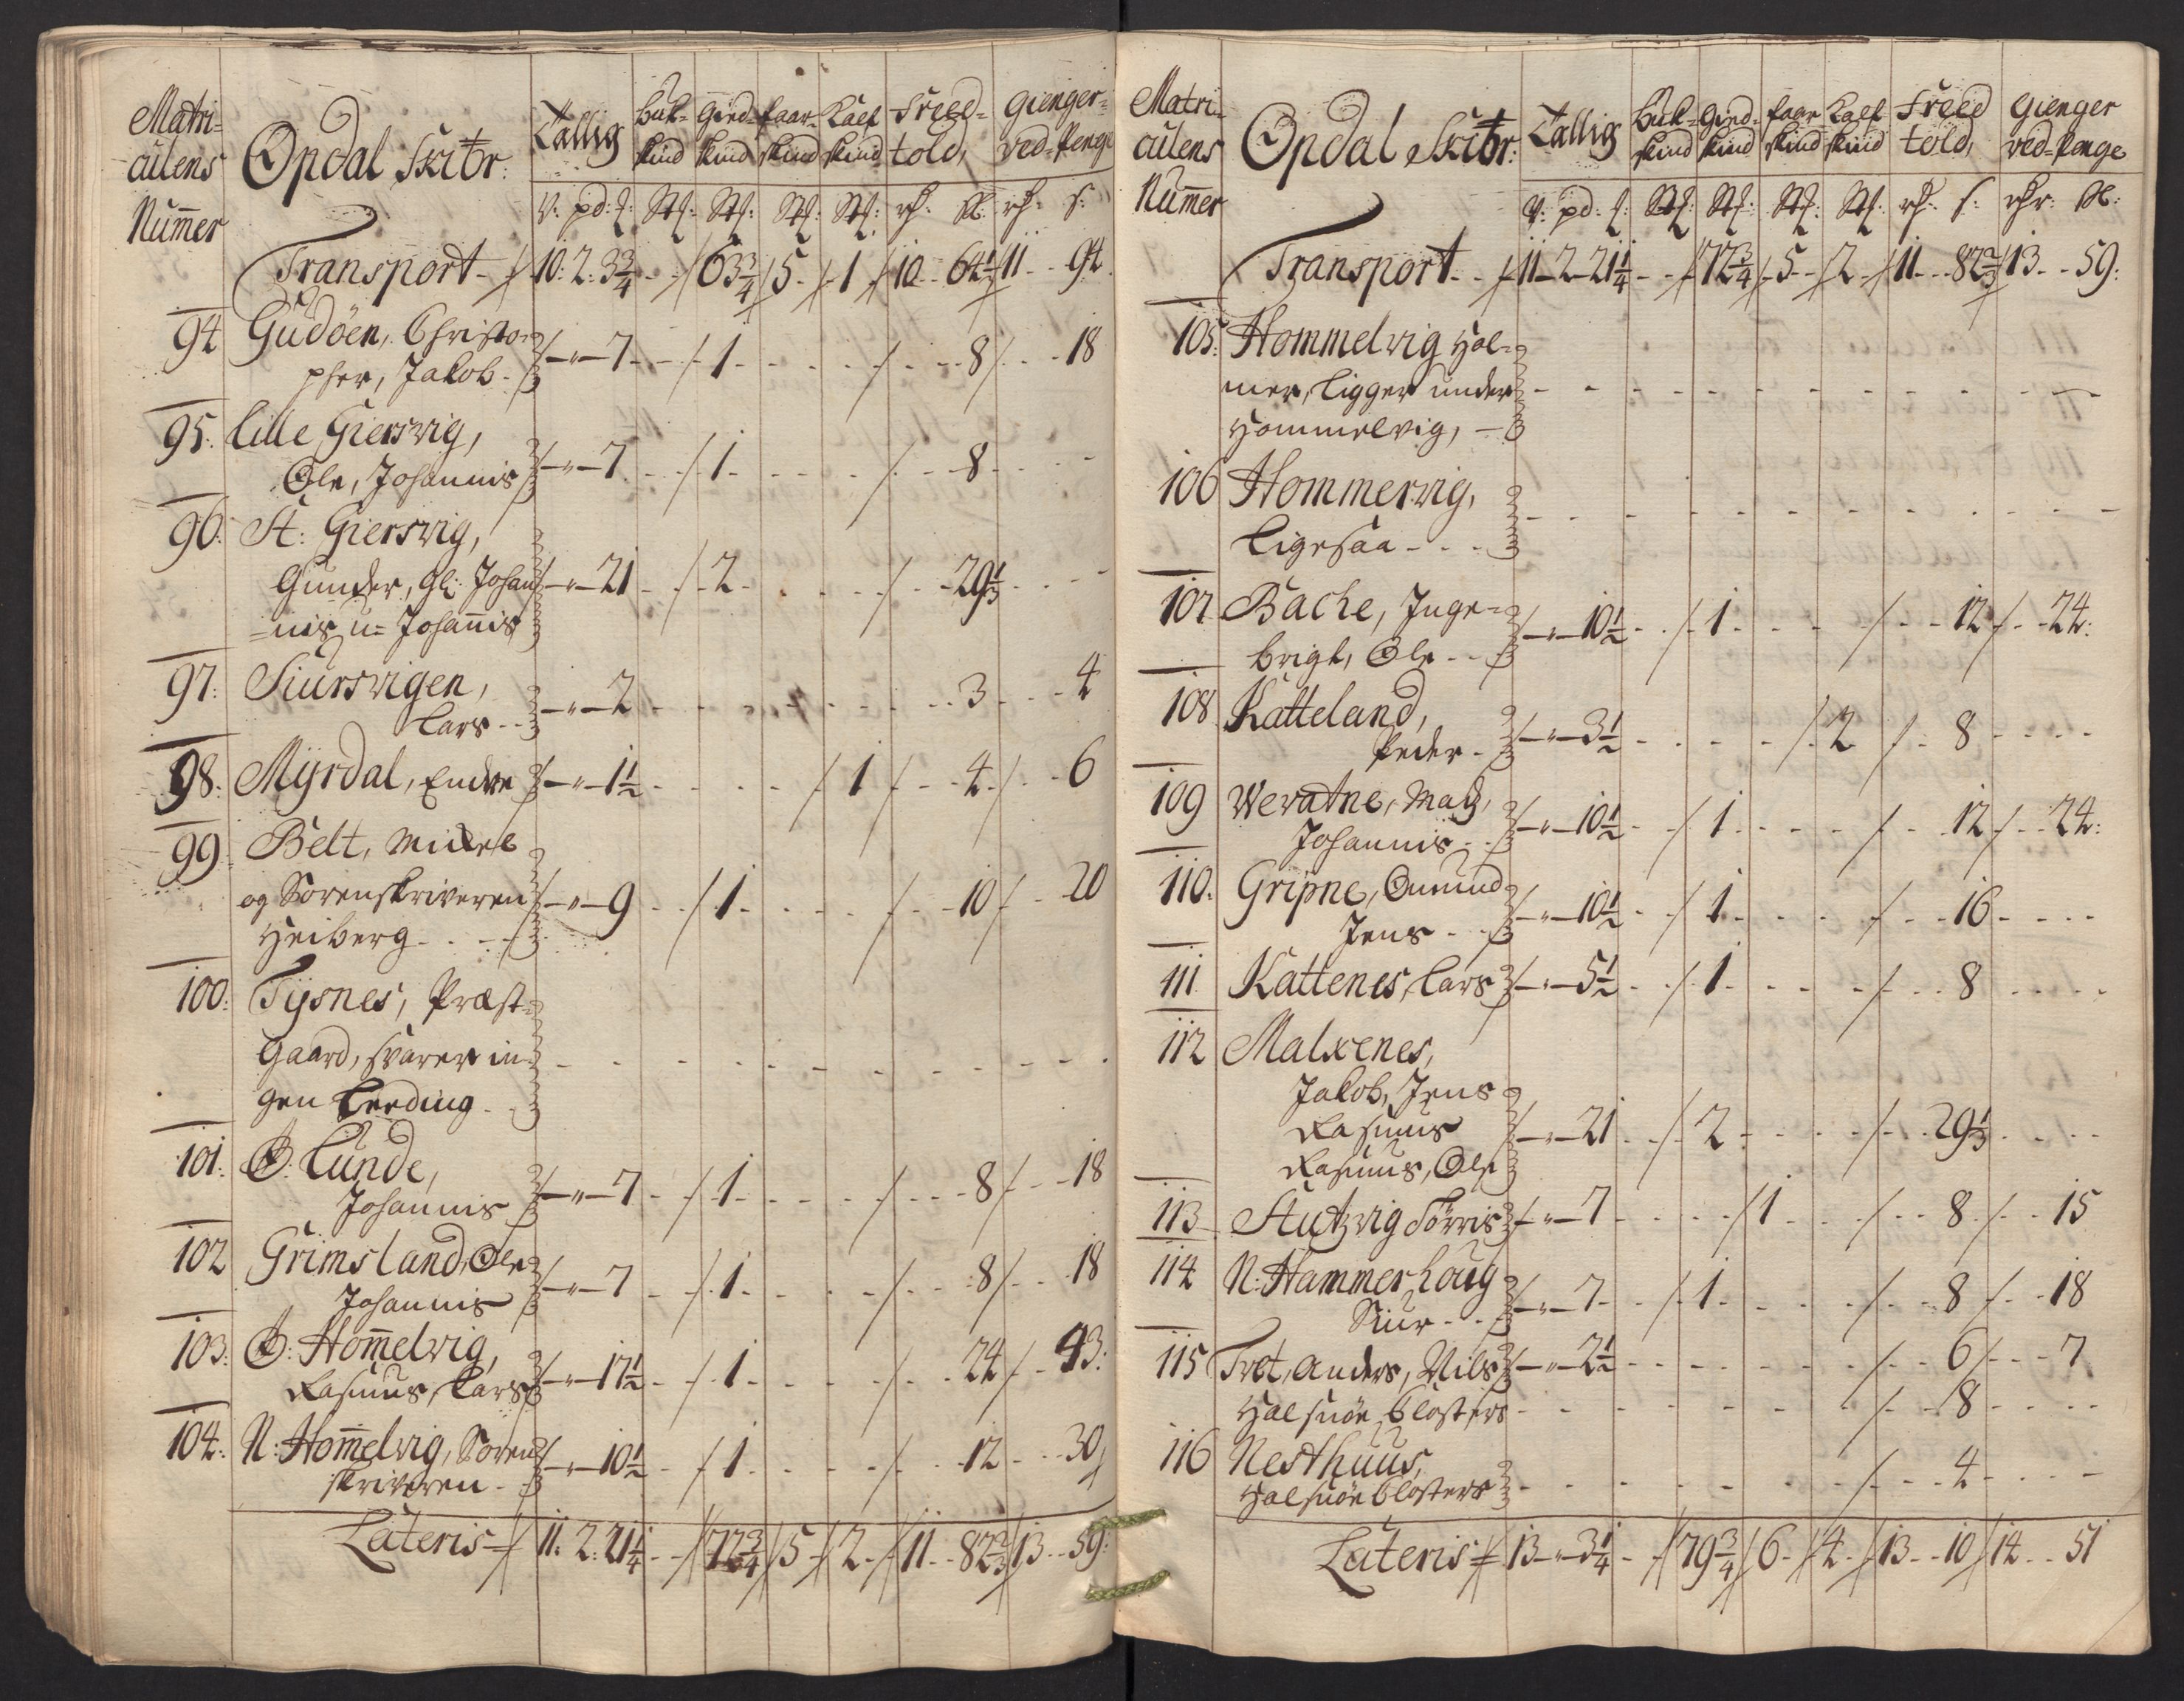 Matri-
culens
Nummer
Opdal Skibr:
Tallig
buk-
skind
gied-
skind
faar-
skind
Kalf
skind
Leed-
told,
gienger-
ved-penge
V: pd: ℔: Stk: Stk: Stk: Stk: rd. s: rd. s:
Transport - 10: 2: 3 3/4 - 63 3/4 5 - 1 10 - 64 1/3 11 - 94
94 Gudöen, Christo-
pher, Jakob - " - 7 - 1 - - - 8 - 18
95: Lille Giersvig,
Ole, Johannis - " - 7 - 1 - - - 8 - -
96: St: Giersvig,
Gunder, gl: Johan
=nis u= Johannis - " - 21 - 2 - - - 29 1/3 - -
97: Siursvigen,
Lars - - " - 2 - - - 3 - 4
98: Myrdal, Endre - " - 1 1/2 - - - 1 - 4 - 6
99 Belt, Mikkel
og Sorenskriveren
Heiberg - " - 9 - 1 - - - 10 - 20
100: Tysnes, Præst-
gaard, svarer in-
gen Leeding - -
101: Ø: Lunde,
Johannis - " - 7 - 1 - - - 8 - 18
102 Grimsland, Ole
Johannis - " - 7 - 1 - - - 8 - 18
103: Ø: Hommelvig,
Rasmus, Lars - " - 17 1/2 - 1 - - - 24 - 43:
104: N: Hommelvig, Soren
skriveren - " - 10 1/2 - 1 - - - 12 - 30
Lateris - 11: 2: 21 1/4 - 72 3/4 5 - 2 - 11 - 82 2/3 13 - 59:
Matri-
culens
Nummer
Opdal Skibr:
Tallig
Buk-
skind
Gied-
skind
faar
skind
Kalf
skind
Leed
told,
Gienger
ved-penge
V: pd: ℔: Stk: Stk: Stk: Stk: rd. s: rdr: s:
Transport - 11 - 2 - 21 1/4 - 72 3/4 - 5 - 2 - 11 - 82 2/3 13 - 59:
105: Hommelvig Hol-
mer, ligger under
Hommelvig, -
106 Hommervig,
Ligesaa - - -
107 Bache, Inge-
brigt, Ole - " - 10 1/2 - 1 - - - 12 - 24:
108 Katteland,
Peder - " - 3 1/2 - - - 2 - 8 - -
109 Weratne, Mad,
Johannis - " - 10 1/2 - 1 - - - 12 - 24:
110: Gripne, Omund
Jens - " - 10 1/2 - 1 - - - 16 - -
111 Kattenes, Lars - " - 5 1/2 - 1 - - - 8 - -
112 Malxenes,
Jakob, Jens
Rasmus
Rasmus, Ole - " - 21 - 2 - - - 29 1/3 - -
113 Stutzvig Torris - " - 7 - - 1 - - 8 - 15
114 N: Hammerhoug
Siur - " - 7 - 1 - - - 8 - 18
115 Tvet, Anders, Nils - " - 2 1/2 - - - 6 - 7
Halsnöe Closters - - - 8 - -
116 Nesthuus,
Halsnöe Closters - - - 4 - -
Lateris - 13 - " - 3 1/4 - 79 3/4 6 - 4 - 13 - 10 14 - 51